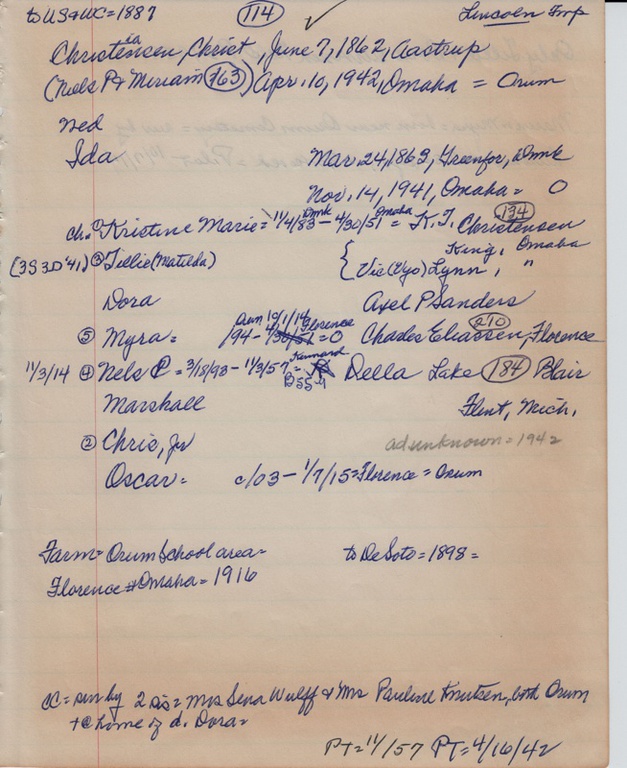 to US & WC = 1887 (114) ✓ Lincoln Imp
Christensen, Christ, June 7, 1862, Aastrup
(Nels P & Miriam (763)) Apr. 10, 1942, Omaha = Orum
Ned
Ida Mar. 24, 1863, Greenfor, Dmk
Nov. 14, 1941, Omaha = O
ch. Kristine Marie = 11/4/83 Dmk - 4/30/51 Omaha = K. T. Christensen (134)
King, Omaha
(3S 3D '41) ③ Tillie (Matilda) { Vic ( ) Lynn, "
Dora Axel P Sanders
Orum 10/1/14 Florence
⑤ Myra = 194 - = O Charles Eliassen, (210) Florence
11/3/14 ④ Nels P = 3/18/93 - 11/3/57 = Kennard Della Lake (184) Blair
Marshall Flint, Mich.
② Chris, Jr ads unknown = 1942
Oscar = c/03 - 1/7/15 = Florence = Orum
Farm = Orum School area = to DeSoto = 1898 =
Florence & Omaha = 1916
CC = sur by 2 ss = Mrs Sena Wulff & Mrs Pauline Knutsen, both Orum
+ @ home of d. Dora =
PT = 11/57 PT = 4/16/42